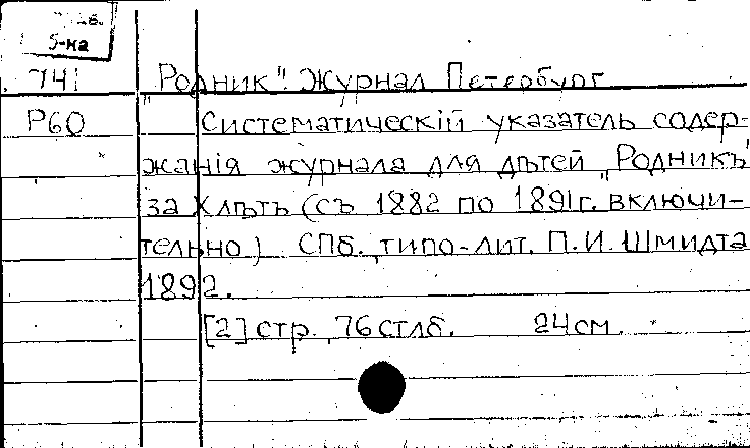 5-ка
741 „Родник". Журнал Петербург
Р60 Систематическiй указатель содер-
жанiя журнала для дѣтей „Родникъ"
за X лѣтъ (съ 1882 по 1891г. включи-
тельно) СПб., типо-лит. П.И. Шмидта
1892.
[2] стр., 76 стлб. 24см.